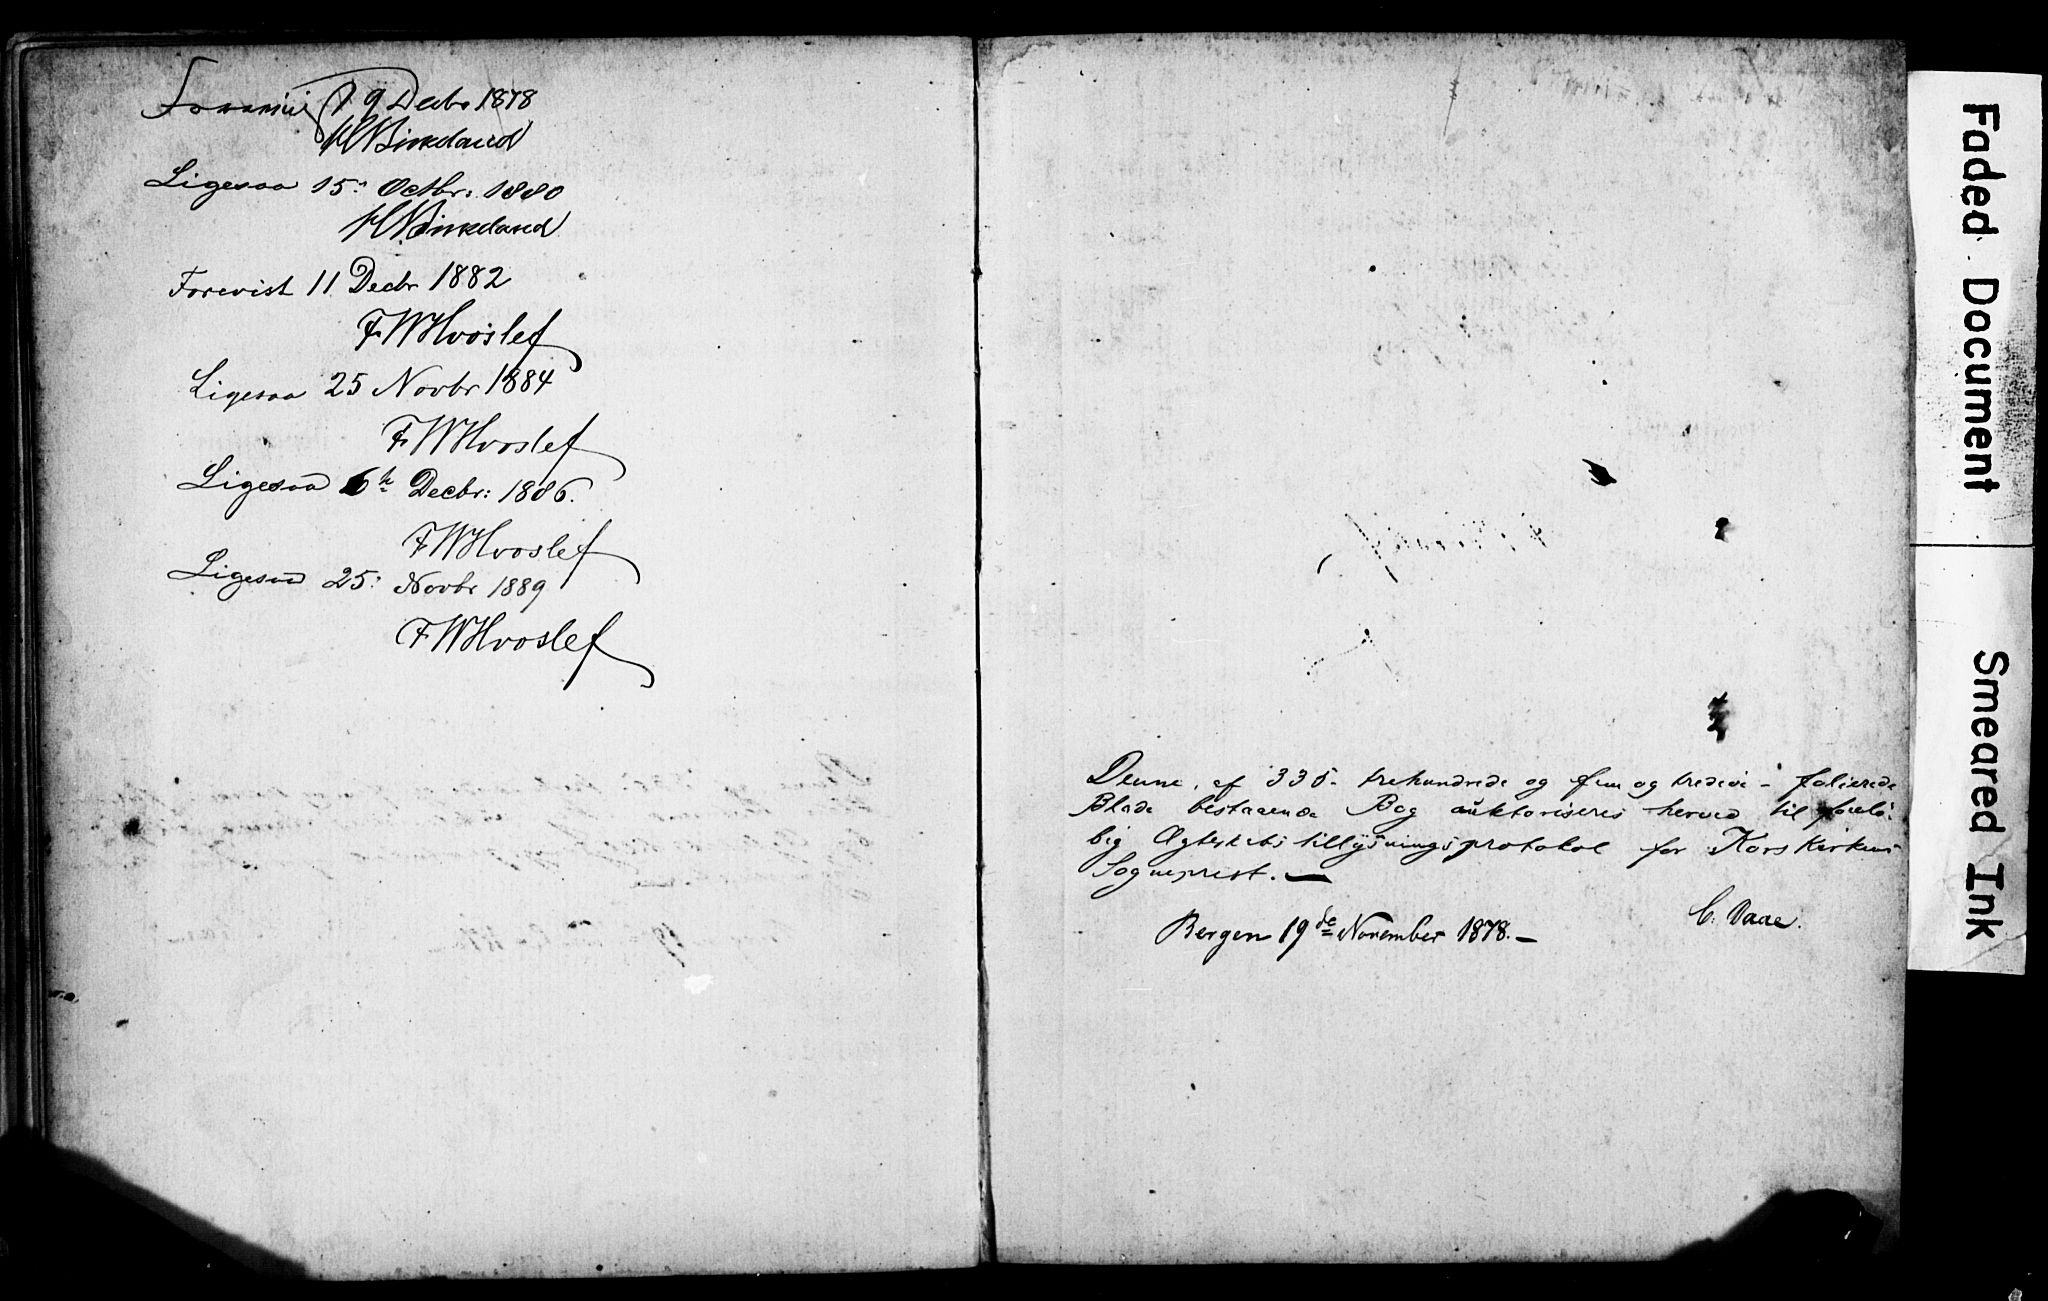 Forevist 19 Decbr 1878
HNBirkeland
Ligesaa 15: Octbr: 1880
HNBirkeland
Forevist 11 Decbr 1882
FWHvoslef
Ligesaa 25 Novbr 1884
FWHvoslef
Ligesaa 6te Decbr: 1886.
FWHvoslef
Ligesaa 25: Novbr 1889
FWHvoslef
Denne, af 335 - trehundrede og fem og tredive - folierede
Blade bestaaende Bog auktoriseres herved til forelø-
big Ægteskabstillysningsprotokol for Korskirkens
Sogneprest. —
C. Daae.
Bergen 19de November 1878. —
Faded Document
Smeared Ink